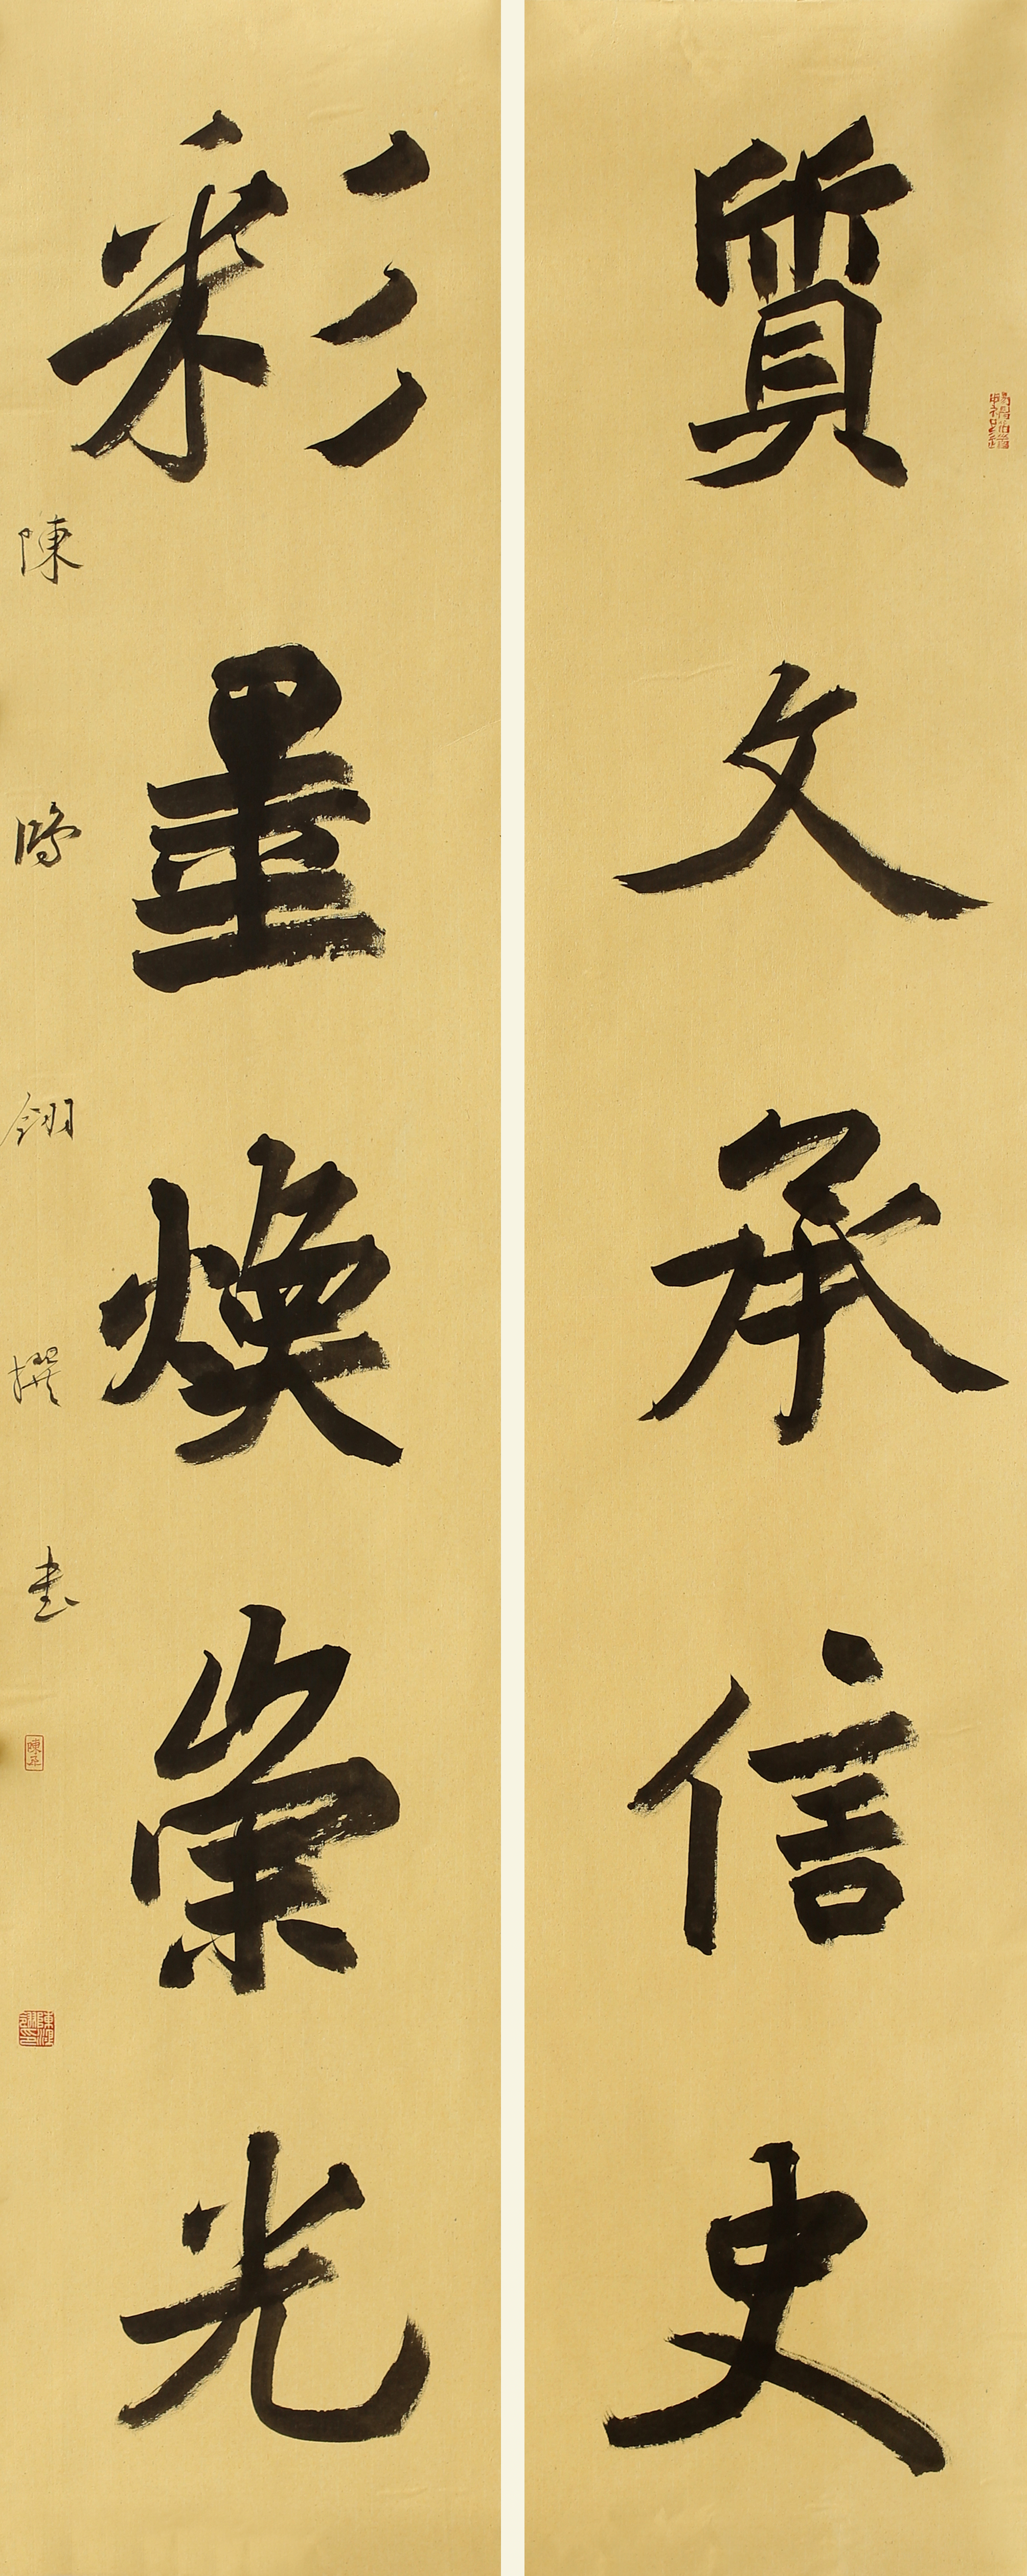 質文承信史
彩墨煥崇光
陳
翊
撰
書